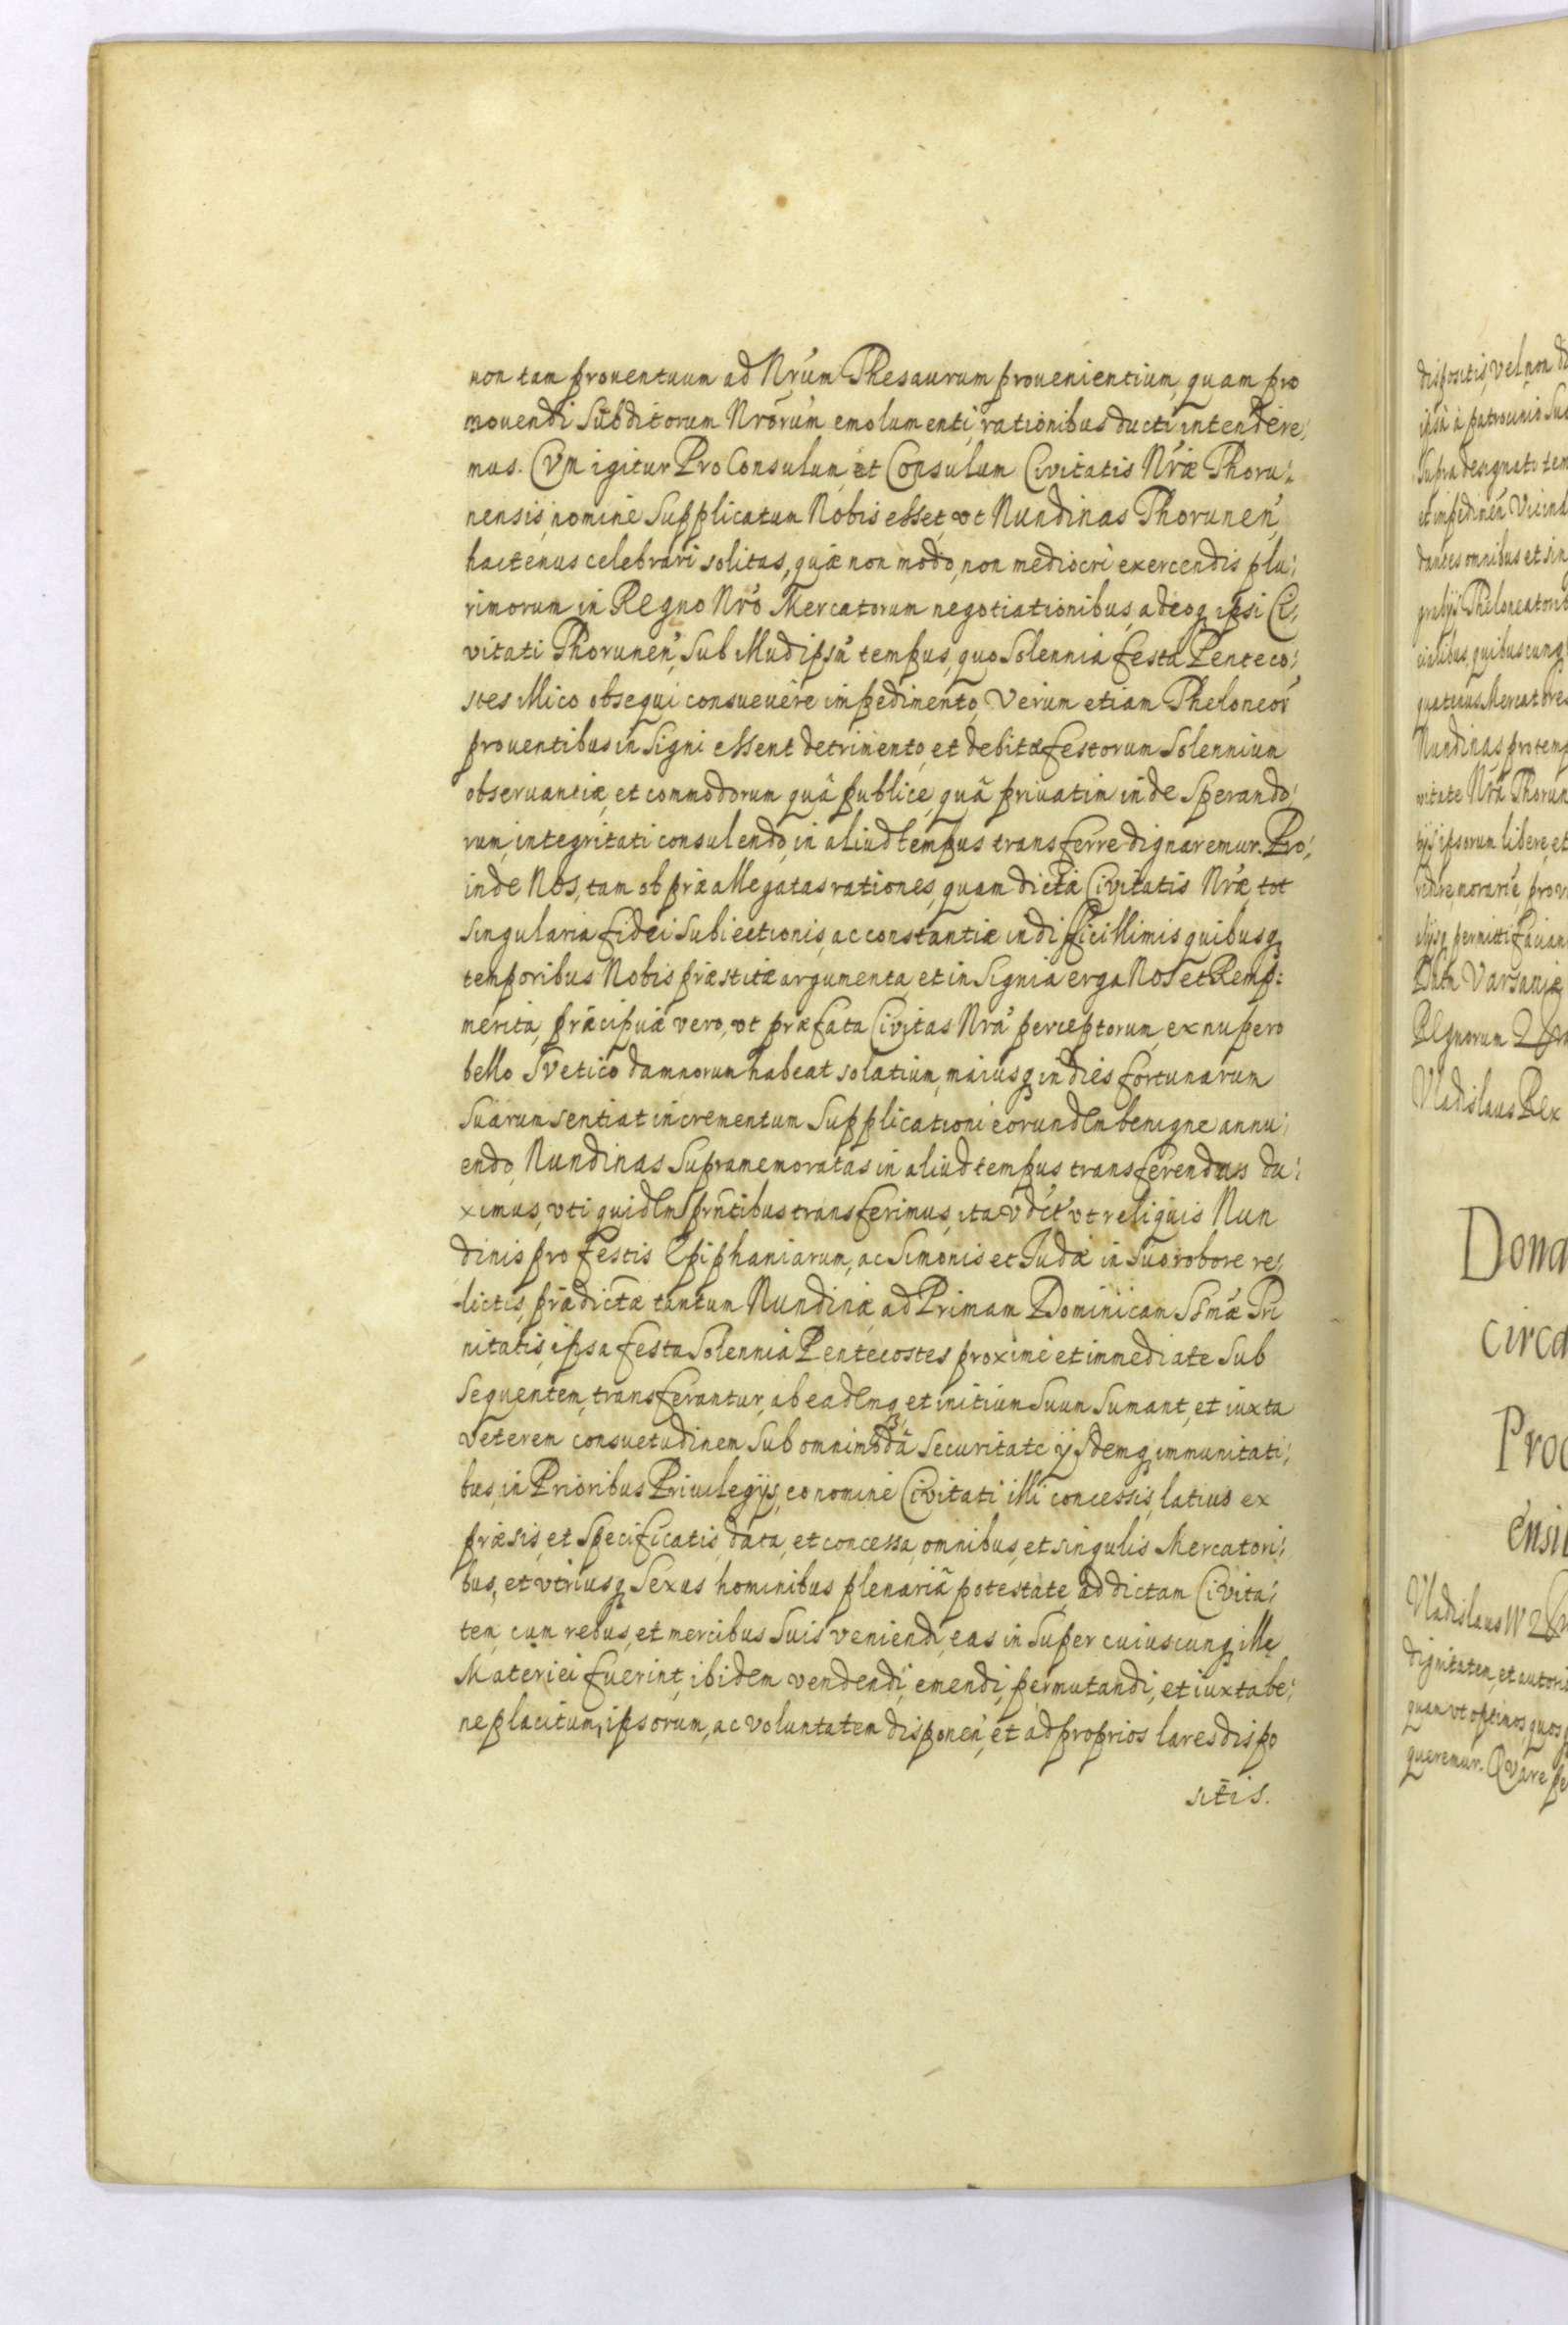 non tam prouentuum ad Nrũm Thesaurum prouenientium, quam pro
mouendi Subditorum Nrõrum emolumenti rationibus ducti intendere,
mus. CVm igitur ProConsulum, et Consulum Civitatis Nræ Thoru,
nensis, nomine Supplicatum Nobis esset, vt Nundinas Thorunen̛,
hactenus celebrari solitas, quæ non modo, non mediocri exercendis plu,
rimorum in Regno Nrõ Mercatorum negotiationibus, adeoq ipsi Ci,
vitati Thorunen̛, Sub illud ipsũ tempus, quo Solennia festa Penteco,
stes illico obsequi consueuere impedimento, Verum etiam Theloneor̃
prouentibus in Signi essent detrimento, et debitæ festorum Solennium
obseruantiæ, et commodorum quâ publice, quâ priuatim inde Sperando,
rum, integritati consulendo, in aliud tempus transferre dignaremur. Pro,
inde Nos, tam ob præallegatas rationes, quam dictæ Civitatis Nræ, tot
Singularia fidei Subiectionis, ac constantiæ in difficillimis quibusq
temporibus Nobis præstitæ argumenta, et in Signia erga Nos et Remp:
merita, præcipuæ vero, vt præfata Civitas Nrã perceptorum, ex nupero
bello SVetico damnorum habeat solatium, maiusq in dies fortunarum
Suarum sentiat incrementum Supplicationi eorundem benigne annu,
endo, Nundinas Supramemoratas in aliud tempus transferendas du,
ximus, vti quidem prñtibus transferimus, ita vdct̃ vt reliquis Nun
dinis pro festis Epiphaniarum, ac Simonis et Judæ in suo robore re,
lictis, prædictæ tantum Nundinæ ad Primam Dominicam Ssmæ Tri
nitatis, ipsa festa Solennia Pentecostes proxime et immediate Sub
Sequentem, transferantur, ab eademq, et initium Suum Sumant, et iuxta
Veterem consuetudinem Sub omnimodâ Securitate ijsdemq immunitati,
bus, in Prioribus Priuilegijs, eo nomine Civitati illi concessis, latius ex
præsis, et Specificatis, data, et concessa, omnibus, et singulis Mercatori,
bus, et vtriusq Sexus hominibus plenariã potestate, ad dictam Civita,
tem, cum rebus, et mercibus Suis veniendi, eas in Super cuiuscunq illę
Materiei fuerint, ibidem vendendi, emendi, permutandi, et iuxta be,
neplacitum, ipsorum, ac voluntatem disponen̛, et ad proprios lares dispo
sitis.
dispositis, vel non
ipsâ à patrocinio
Supra designato tem
et impedimen̛ Vicina
dantes omnibus et sin
cialibus, quibuscunq
quatenus Mercatores
Nundinas, pro temp
vitate Nrã Thorun
ipsorum libere, et
permitti facian
Datũ Varsaviæ
Regnorum
Vladislaus Rex
Dona
circa
Proc
ensi
Vladislaus IV
dignitatem, et autori
quam vt optimos, quos
queremur. QVare pe